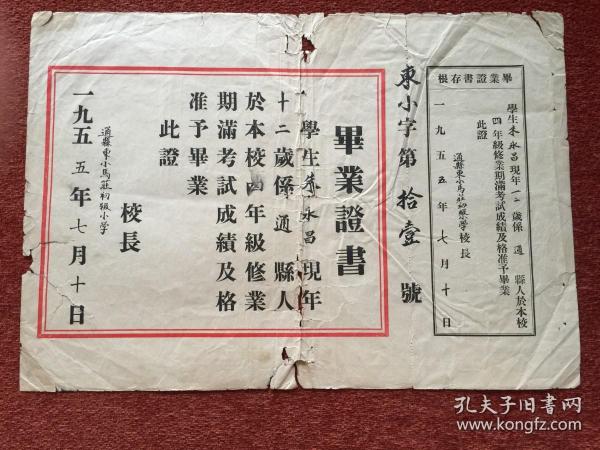 畢業證書存根
學生朱永昌現年一二歲係通縣人於本校
四年級修業期滿考試成績及格准予畢業
此證
通縣東小馬莊初級小學校長
一九五五年七月十日
東小字第拾壹號
畢業證書
學生朱永昌現年
十二歲係通縣人
於本校四年級修業
期滿考試成績及格
准予畢業
此證
通縣東小馬莊初級小學
校長
一九五五年七月十日
孔夫子旧书网
www.kongfz.com